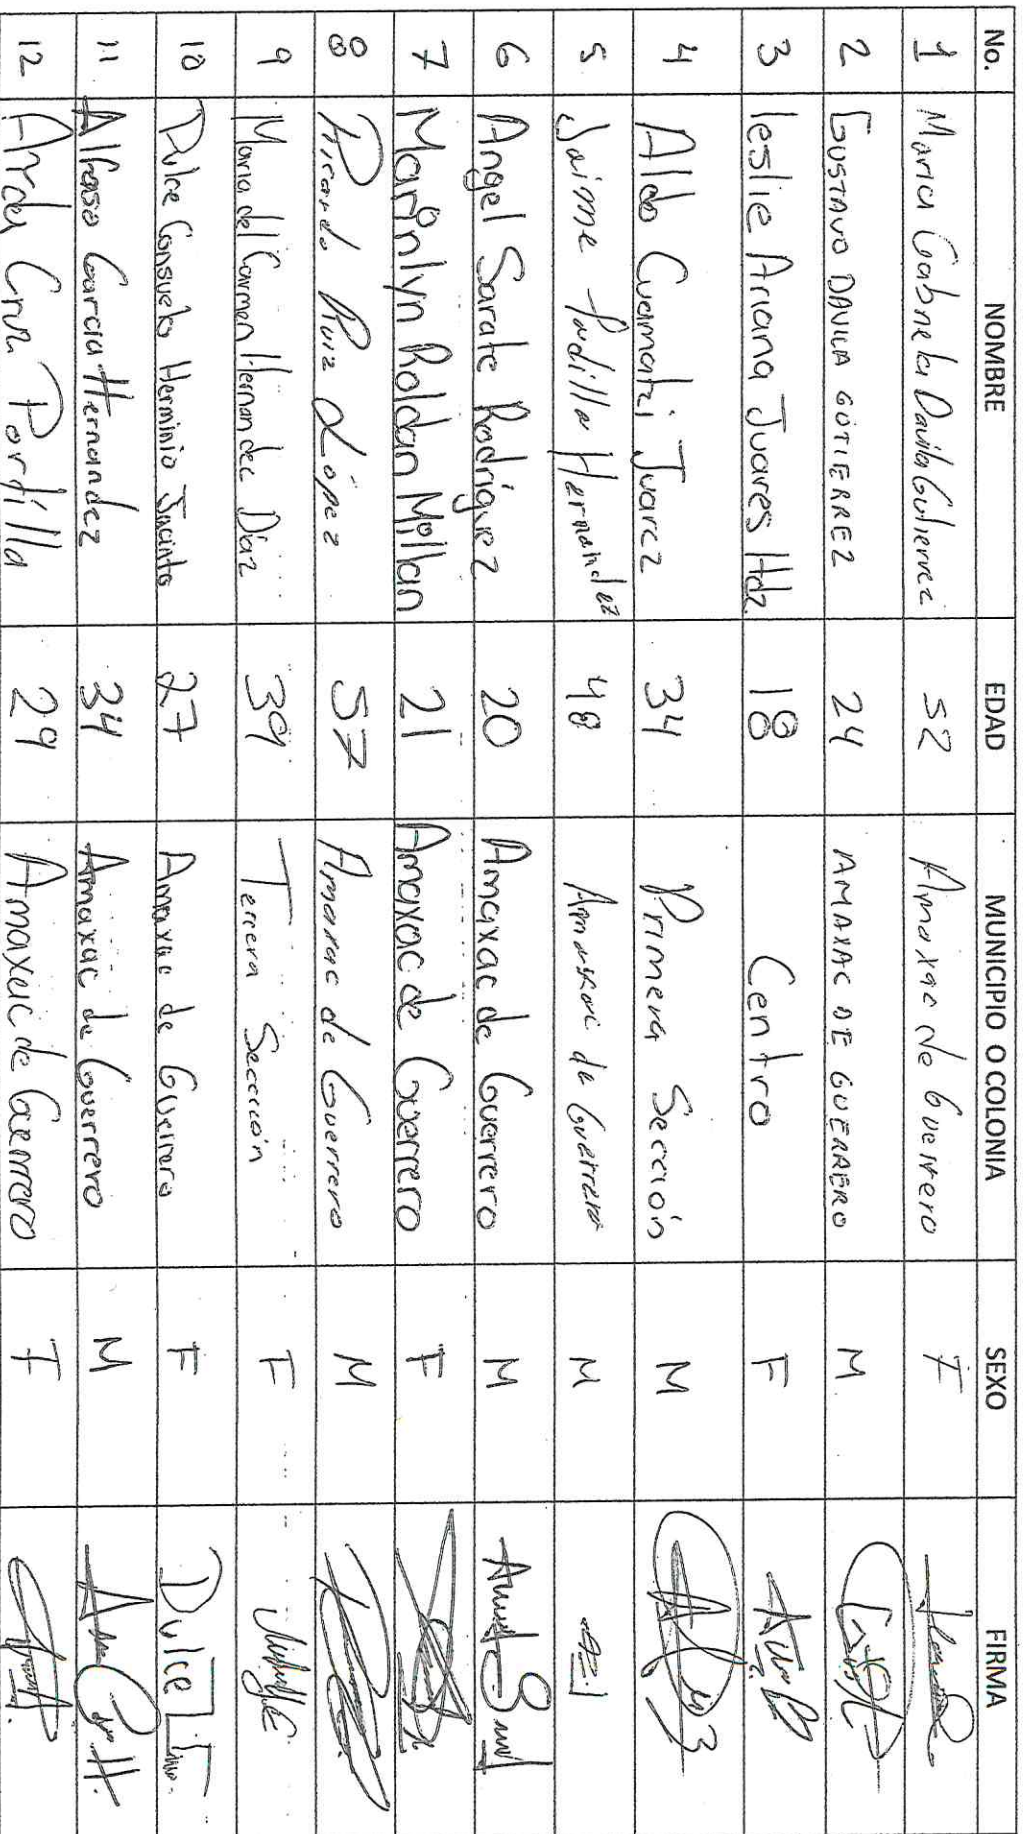 No. NOMBRE EDAD MUNICIPIO O COLONIA SEXO FIRMA
1 Maria Gabriela Davila Gutierrez 52 Amaxac de Guerrero F
2 GUSTAVO DAVILA GUTIERREZ 24 AMAXAC DE GUERRERO M
3 leslie Ariana Juares Hdz 18 Centro F
4 Aldo Cuamatzi Juarez 34 Primera Sección M
5 Jaime Padilla Hernandez 48 Amaxac de Guerrero M
6 Angel Sarate Rodriguez 20 Amaxac de Guerrero M
7 Marinlyn Roldan Millan 21 Amaxac de Guerrero F
8 Ricardo Ruiz López 57 Amaxac de Guerrero M
9 Maria del Carmen Hernandez Diaz 39 Tercera Sección F
10 Dulce Consuelo Herminio Jacinto 27 Amaxac de Guerrero F Dulce
11 Alfonso Garcia Hernandez 34 Amaxac de Guerrero M
12 Cruz Portilla 29 Amaxac de Guerrero F